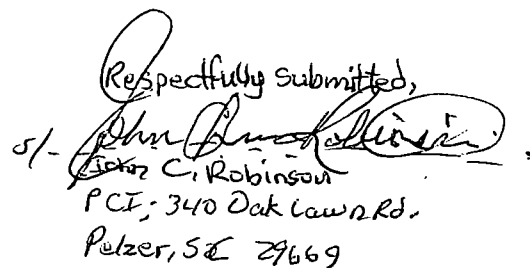 Respectfully Submitted,
s/- John Robinson
John C. Robinson
PCI; 340 Oak Lawn Rd.
Pelzer, SC 29669